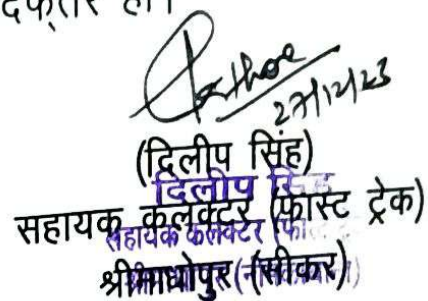 दफ्तर हो।
27/12/23
(दिलीप सिंह)
दिलीप सिंह
सहायक कलक्टर (फास्ट ट्रेक)
सहायक कलक्टर (फा
श्रीमाधोपुर (सीकर)